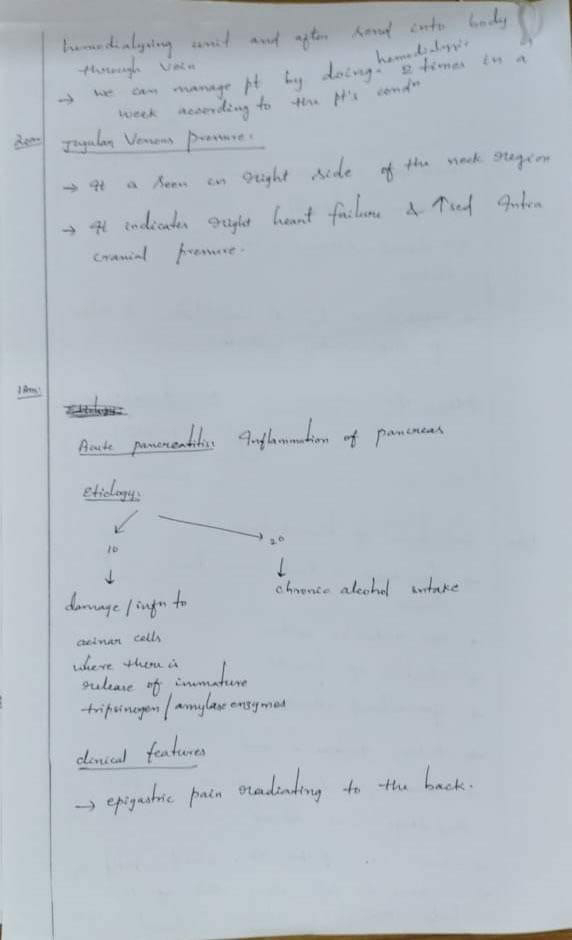 hemodialysing unit and after send into body
through vein
→ we can manage pt by doing hemodialysis 2 times in a
week according to the pt's condn
Jugular Venous Pressure:
→ It is seen in right side of the neck region
→ It indicates right heart failure & ↑sed Intra
cranial pressure.
Etiology
Acute pancreatitis: Inflammation of pancreas
Etiology:
1o 2o
↓ ↓
damage/infn to chronic alcohol intake
acinar cells
where there is
release of immature
tripsinogen/amylase enzymes
clinical features
→ epigastric pain radiating to the back.